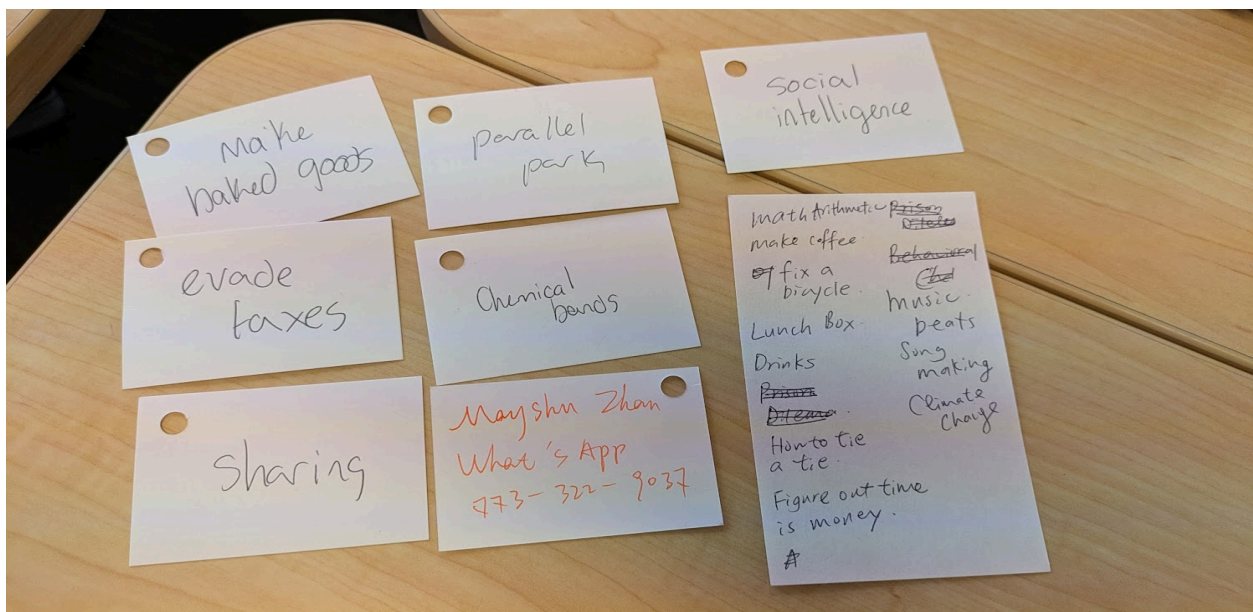 Make
baked goods
parallel
park
social
intelligence
evade
taxes
Chemical
bonds
sharing
Mayshu Zhan
What's App
773-322-9037
math Arithmetic
make coffee
fix a
bicycle.
Lunch Box.
Drinks
Prison
How to tie
a tie.
Figure out time
is money.
Prison
Behavioral
music
beats
Song
making
Climate
Change